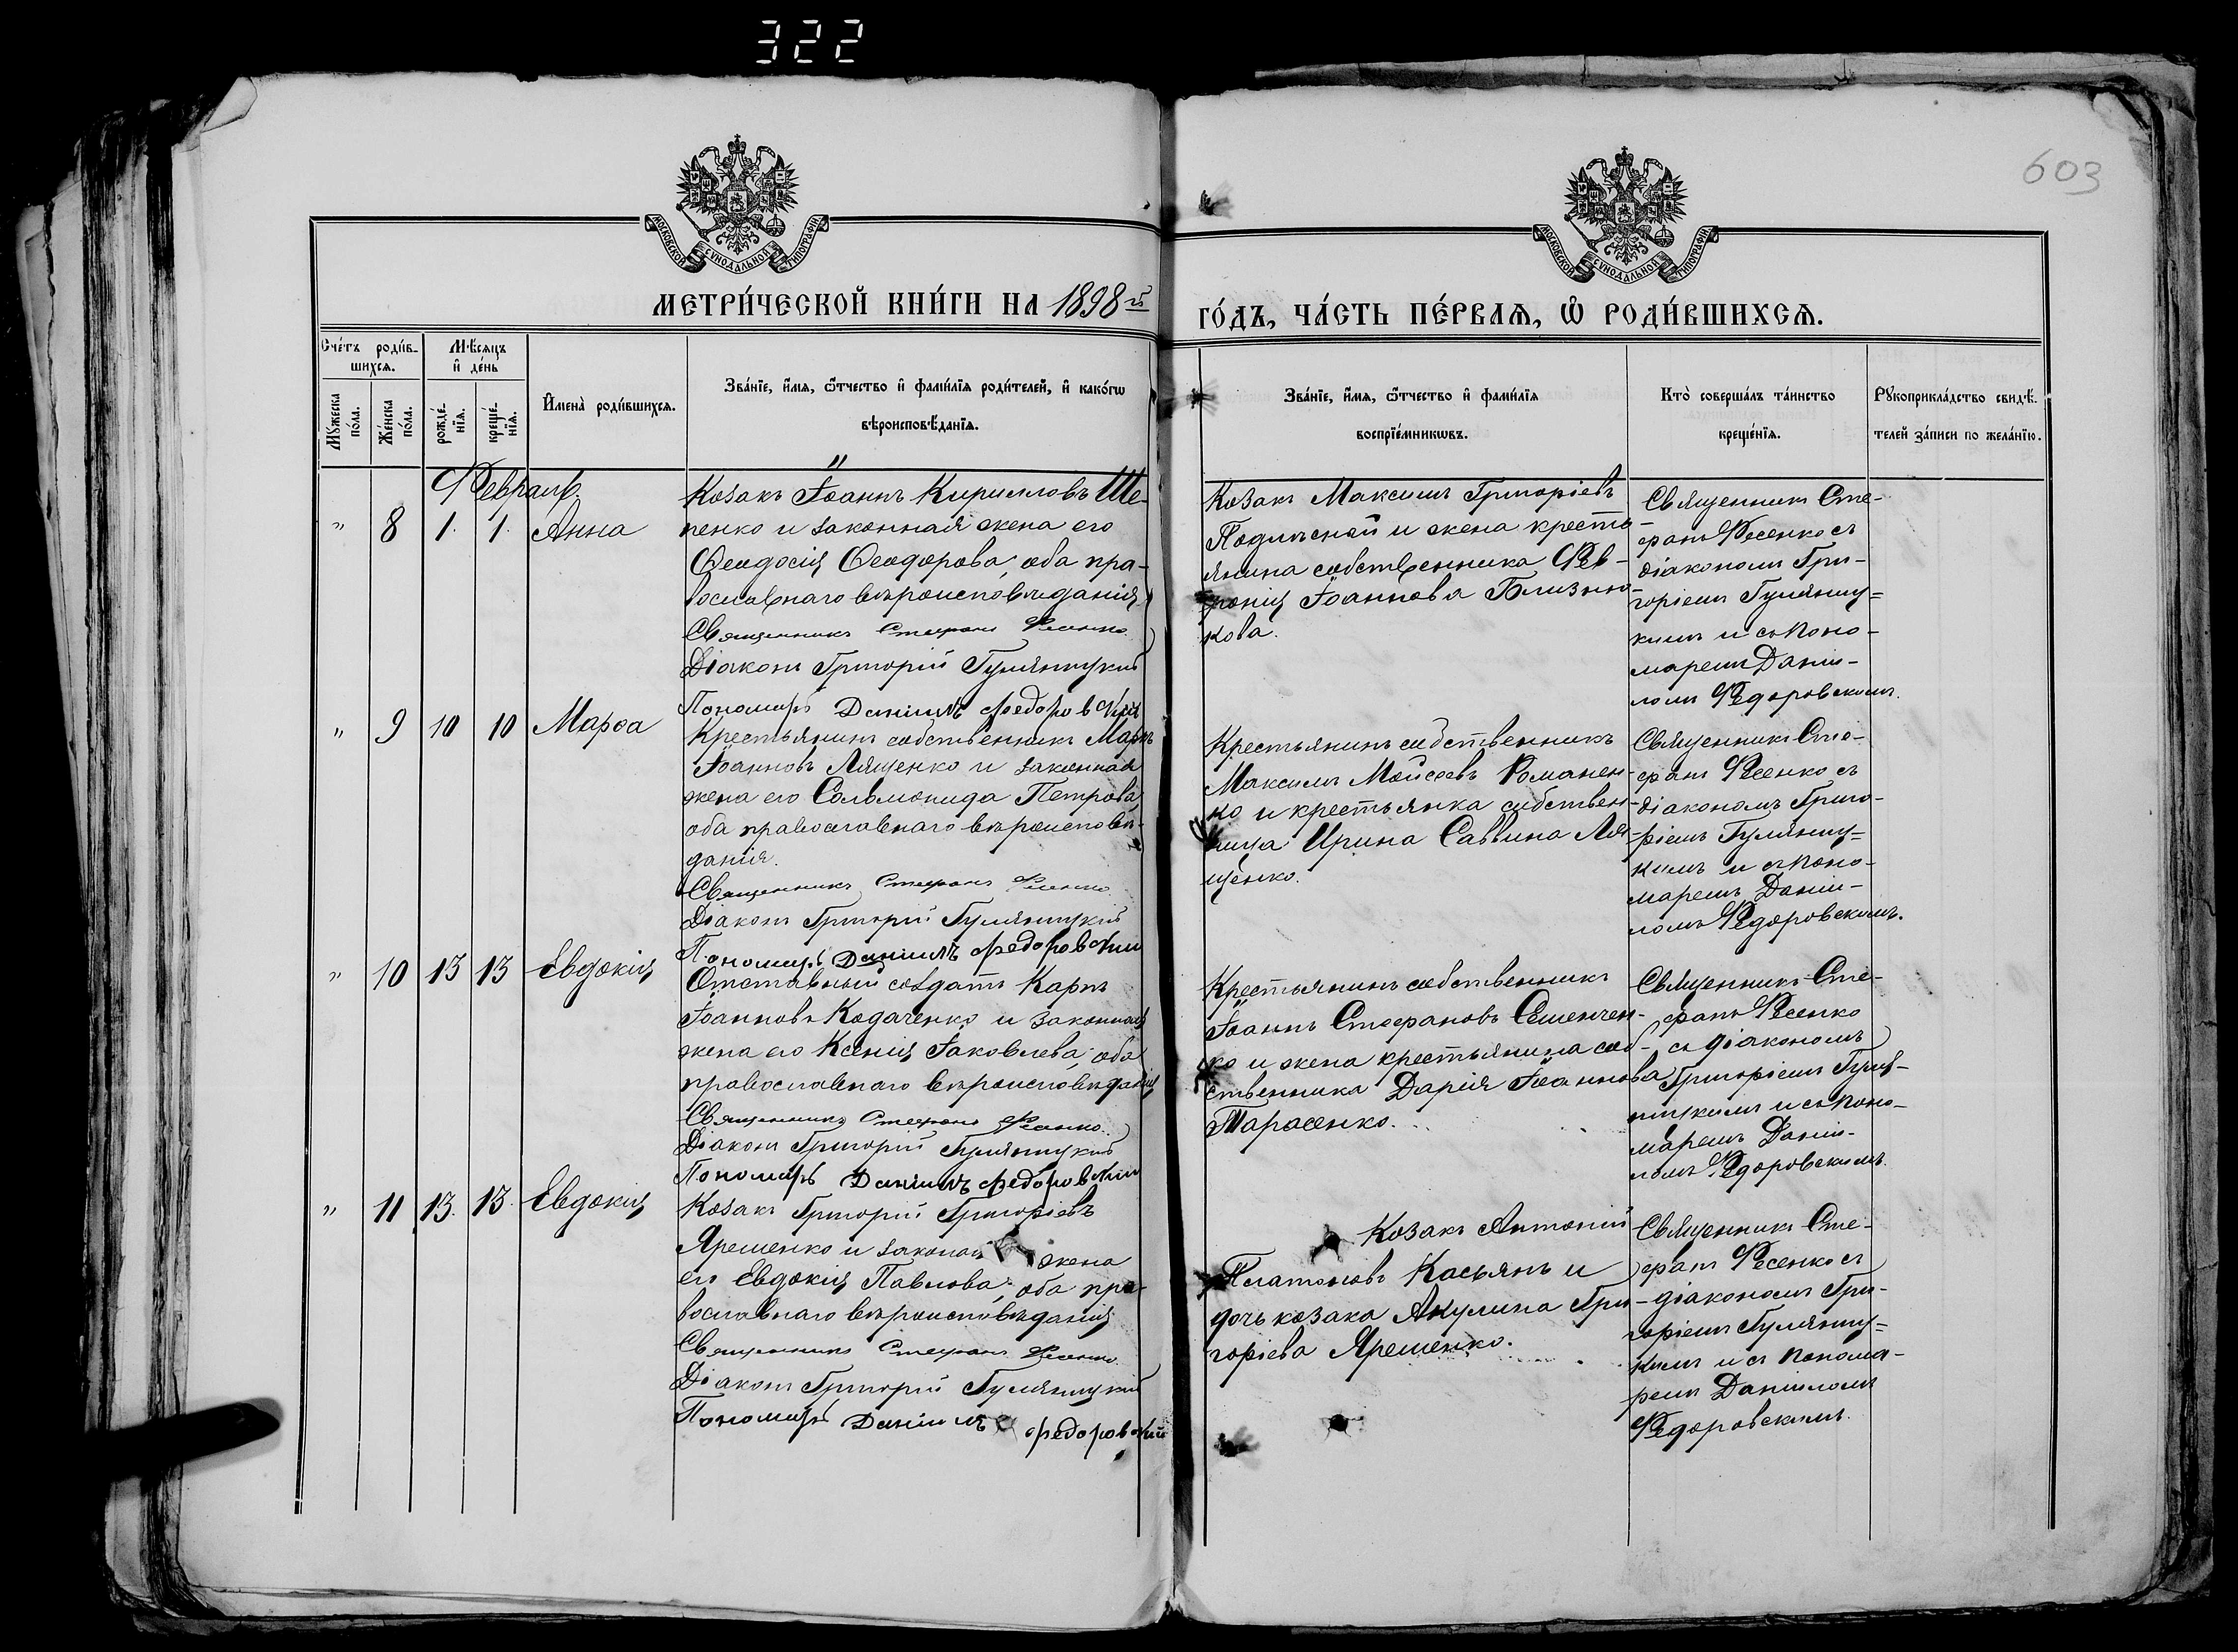 322
603
МОСКОВСКОЙ СУНОДАЛЬНОЙ ТИПОГРАФІИ
МОСКОВСКОЙ СУНОДАЛЬНОЙ ТИПОГРАФІИ
МЕТРИ́ЧЕСКОЙ КНИ́ГИ НА 1898 й
ГО́ДЪ, ЧА́СТЬ ПЕ́РВАѦ, Ѡ҆ РОДИ́ВШИХСѦ.
Сче́тъ роди́в-
шихсѧ.
Мꙋжеска по́ла.
Же́нска по́ла.
Мѣ́сѧцъ
и҆ де́нь
рожде́-
нїѧ.
креще́-
нїѧ.
И҆мена̀ роди́вшихсѧ.
Зва́нїе, и҆́мѧ, ѻ҆́тчество и҆ фами́лїѧ роди́телей, и҆ како́гѡ
вѣроисповѣ́данїѧ.
Зва́нїе, и҆́мѧ, ѻ҆́тчество и҆ фами́лїѧ
воспрїе́мникѡвъ.
Кто̀ соверша́лъ та́инство
креще́нїѧ.
Рꙋкоприкла́дство свидѣ́-
телей за́писи по жела́нїю.
Февраль.
" 8 1. 1. Анна
Козакъ Іоаннъ Кирилловъ Ше-
пенко и законная жена его
Ѳеодосія Ѳеодорова, оба пра-
вославнаго вѣроисповѣданія.
Священникъ Стефанъ Фесенко
Діаконъ Григорій Гуляницкій
Пономарь Даніилъ Федоровскій
Козакъ Максимъ Григоріевъ
и жена кресть-
янина собственника Фев-
ронія Іоаннова Близню-
кова.
Священникъ Сте-
фанъ Фесенко съ
діакономъ Гри-
горіемъ Гуляниц=
кимъ и съ поно-
маремъ Дании-
ломъ Федоровскимъ.
" 9 10 10 Марѳа
Крестьянинъ собственникъ Маркъ
Іоанновъ Лященко и законная
жена его Соломонида Петрова,
оба православнаго вѣроисповѣ-
данія.
Священникъ Стефанъ Фесенко
Діаконъ Григорій Гуляницкій
Пономарь Даніилъ Федоровскій
Крестьянинъ собственникъ
Максимъ Мойсеевъ Романен-
ко и крестьянка собствен-
ница Ирина Саввина Ля-
щенко.
Священникъ Сте-
фанъ Фесенко съ
діакономъ Григо-
ріемъ Гуляниц=
кимъ и съ поно-
маремъ Дании-
ломъ Федоровскимъ.
" 10 13 13 Евдокія
Отставный солдатъ Карпъ
Іоанновъ Кодаченко и законная
жена его Ксенія Іаковлева, оба
православнаго вѣроисповѣданія
Священникъ Стефанъ Фесенко
Діаконъ Григорій Гуляницкій
Пономарь Даніилъ Федоровскій
Крестьянинъ собственникъ
Іоаннъ Стефановъ Семенчен-
ко и жена крестьянина соб-
ственника Дарія Іоаннова
Тарасенко.
Священникъ Сте-
фанъ Фесенко
съ діакономъ
Григоріемъ Гуля-
ницкимъ и съ поно-
маремъ Дании-
ломъ Федоровскимъ.
" 11 13. 13. Евдокія
Козакъ Григорій Григоріевъ
Ярешенко и законая жена
его Евдокія Павлова, оба пра-
вославнаго вѣроисповѣданія
Священникъ Стефанъ Фесенко
Діаконъ Григорій Гуляницкій
Пономарь Даніилъ Федоровскій
Козакъ Антоній
Платоновъ Касьянъ и
дочь козака Акулина Гри-
горіева Ярешенко.
Священникъ Сте-
фанъ Фесенко съ
діакономъ Гри-
горіемъ Гуляниц=
кимъ и съ понома-
ремъ Данииломъ
Федоровскимъ.